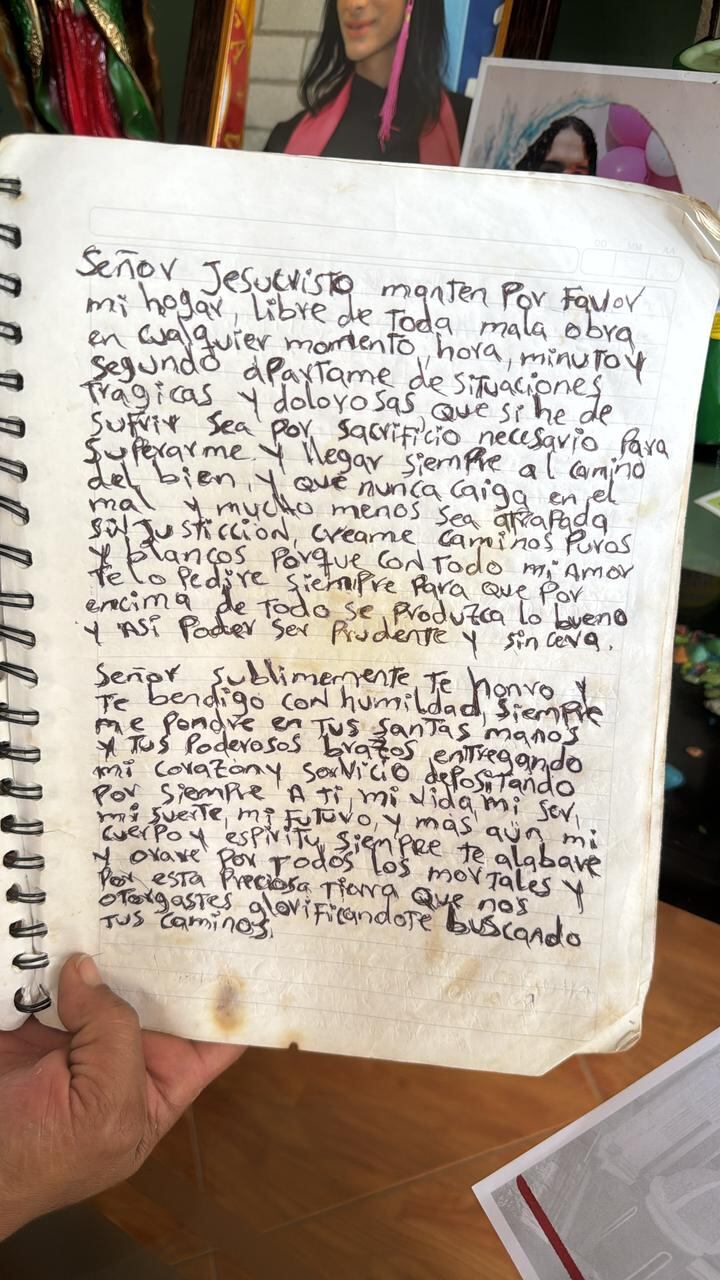 DD MM AA
Señor Jesucristo manten Por Favor
mi hogar, libre de Toda mala obra
en cualquier momento, hora, minuto y
segundo apartame de situaciones
Tragicas y dolorosas que si he de
sufrir sea por sacrificio necesario Para
Superarme y llegar siempre al camino
del bien, y que nunca caiga en el
mal y mucho menos sea atrapada
sin justiccion, creame caminos Puros
y blancos porque con todo mi Amor
te lo Pedire siempre Para que Por
encima de Todo se Produzca lo bueno
y Asi Poder ser Prudente y sincera.
Señor sublimemente Te honro y
Te bendigo con humildad, siempre
me pondre en Tus santas manos
y Tus Poderosos brazos entregando
mi corazon y servicio depositando
Por siempre A Ti, mi vida, mi ser,
mi suerte, mi Futuro, y más aún mi
cuerpo y espiritu, siempre te alabare
y orare por Todos los mortales y
Por esta Preciosa Tierra Que nos
otorgastes glorificandote buscando
Tus caminos.